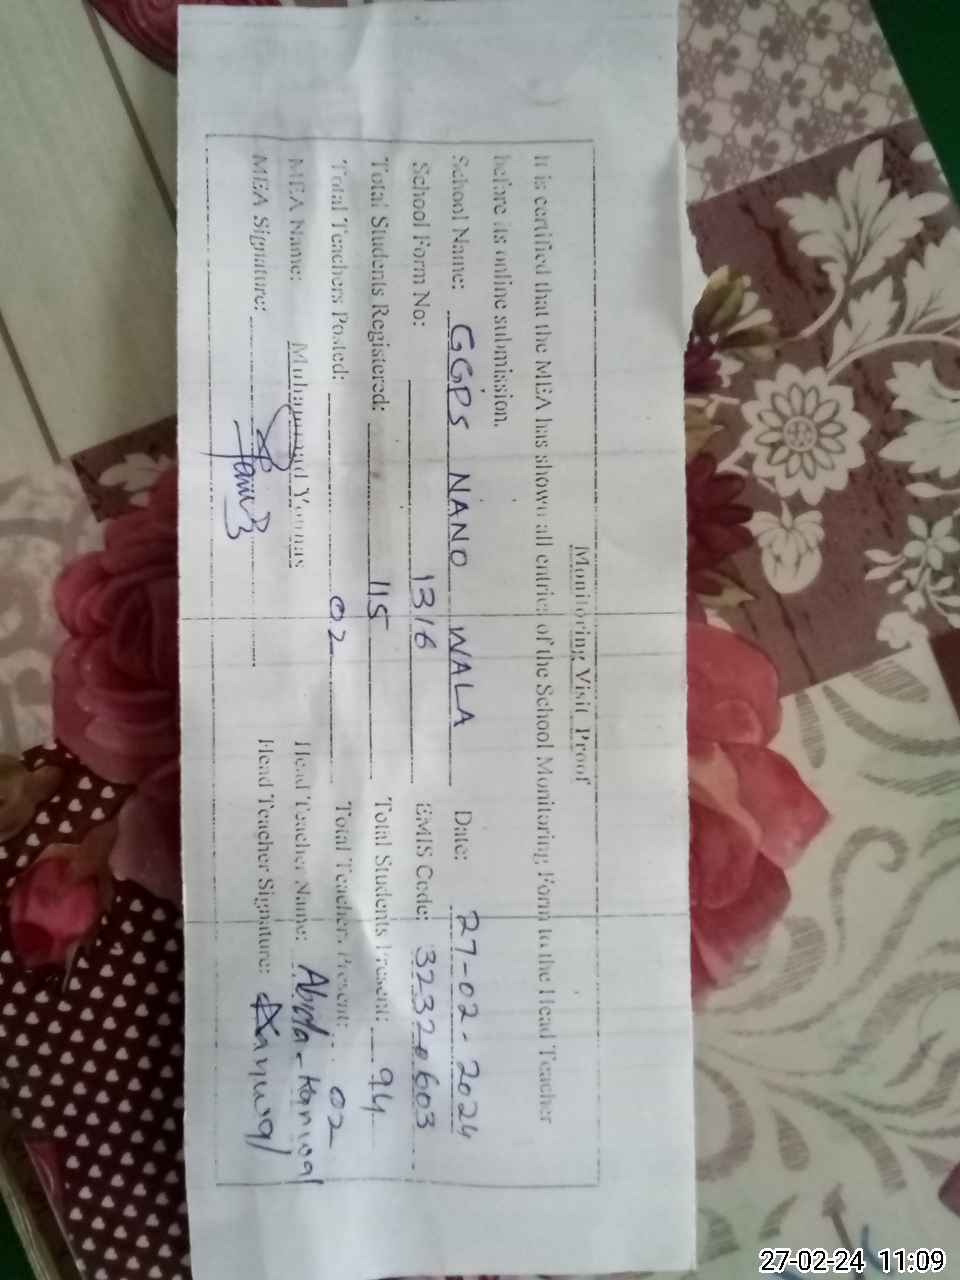 Monitoring Visit Proof
It is certified that the MEA has shown all entries of the School Monitoring Form to the Head Teacher
before its online submission.
School Name: GGPS NANO WALA Date: 27-02-2024
School Form No: 1316 EMIS Code: 32320603
Total Students Registered: 115 Total Students Present: 94
Total Teachers Posted: 02 Total Teachers Present: 02
MEA Name: Muhammad Younas Head Teacher Name: Abida-Kanwal
MEA Signature: Head Teacher Signature: Kanwal
27-02-24 11:09